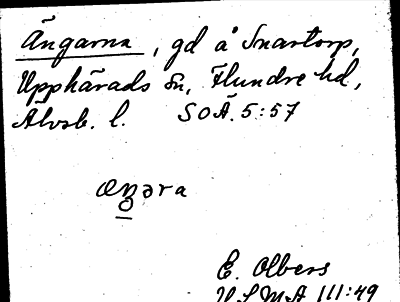 Ängarna, gd å Snartorp,
Upphärads sn, Flundre hd,
Älvsb. l. SOÄ. 5:57
æŋəra
E. Olbers
III:49